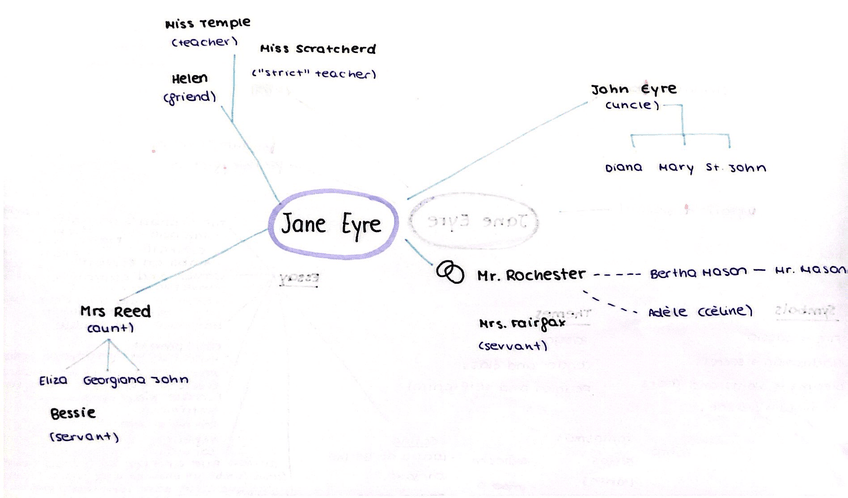 Miss Temple
(teacher)
Miss Scratcherd
("strict" teacher)
Helen
(friend)
John Eyre
(uncle)
Diana Mary St. John
Jane Eyre
Jane Eyre
Essay
Mr. Rochester ----- Bertha Mason — Mr. Mason
Adèle (Céline)
Symbols
Themes
Mrs. Fairfax
(servant)
Mrs Reed
(aunt)
Eliza Georgiana John
Bessie
(servant)